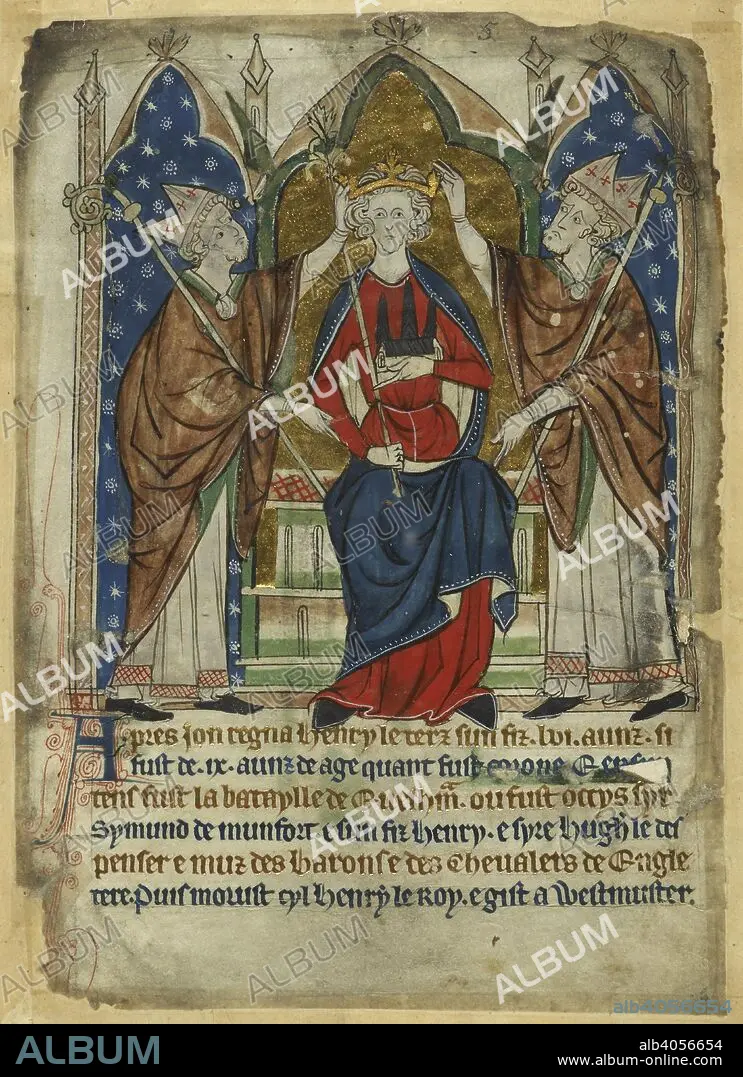 5
Apres Jon regna Henry le terz sun fiz . lvi . aunz . si
fust de . ix . aunz de age quant fust corone E en su
tens fust la bataylle de ou fust occys syr
Symund de munfort e sun fiz Henry . e syre Hugh le des
penser e muz des barons e des Chevalers de Engle
tere . Puis morust cyl Henry le Roy . e gist a Westmuster .
ALBUM
alb4056654
ALBUM
alb4056654
www.album-online.com